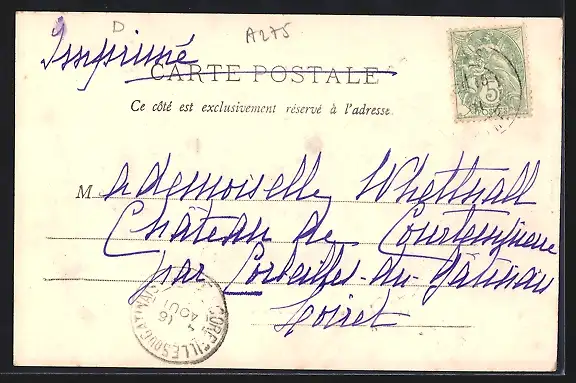 D A275
Imprimé
CARTE POSTALE
Ce côté est exclusivement réservé à l'adresse.
5
POSTES
Mademoiselle Whettnall
Château de Courtempierre
par Corbeilles-du-Gâtinais
Loiret
CORBEILLES DU GATINAIS
16
AOUT